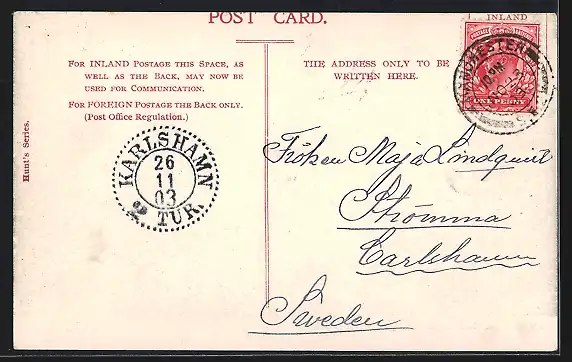 POST CARD.
INLAND
FOR INLAND POSTAGE THIS SPACE, AS
WELL AS THE BACK, MAY NOW BE
USED FOR COMMUNICATION.
FOR FOREIGN POSTAGE THE BACK ONLY.
(Post Office Regulation.)
THE ADDRESS ONLY TO BE
WRITTEN HERE.
MANCHESTER
ONE PENNY
Hunt's Series.
KARLSHAMN
26
11
03
2 TUR.
Fröken Maja Lindquist
Strömma
Carlshamn
Sweden